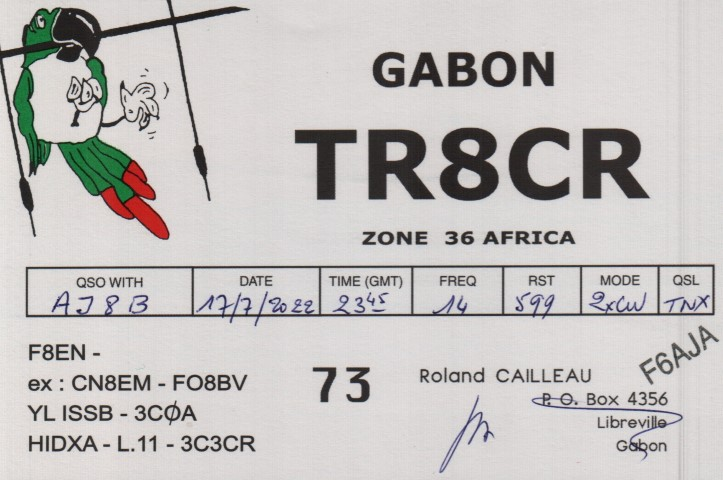 GABON
TR8CR
ZONE 36 AFRICA
QSO WITH DATE TIME (GMT) FREQ RST MODE QSL
AJ8B 17/7/2022 23 45 14 599 2xCW TNX
F8EN -
ex : CN8EM - FO8BV
YL ISSB - 3CØA
HIDXA - L.11 - 3C3CR
73
Roland CAILLEAU
P. O. Box 4356
Libreville
Gabon
F6AJA